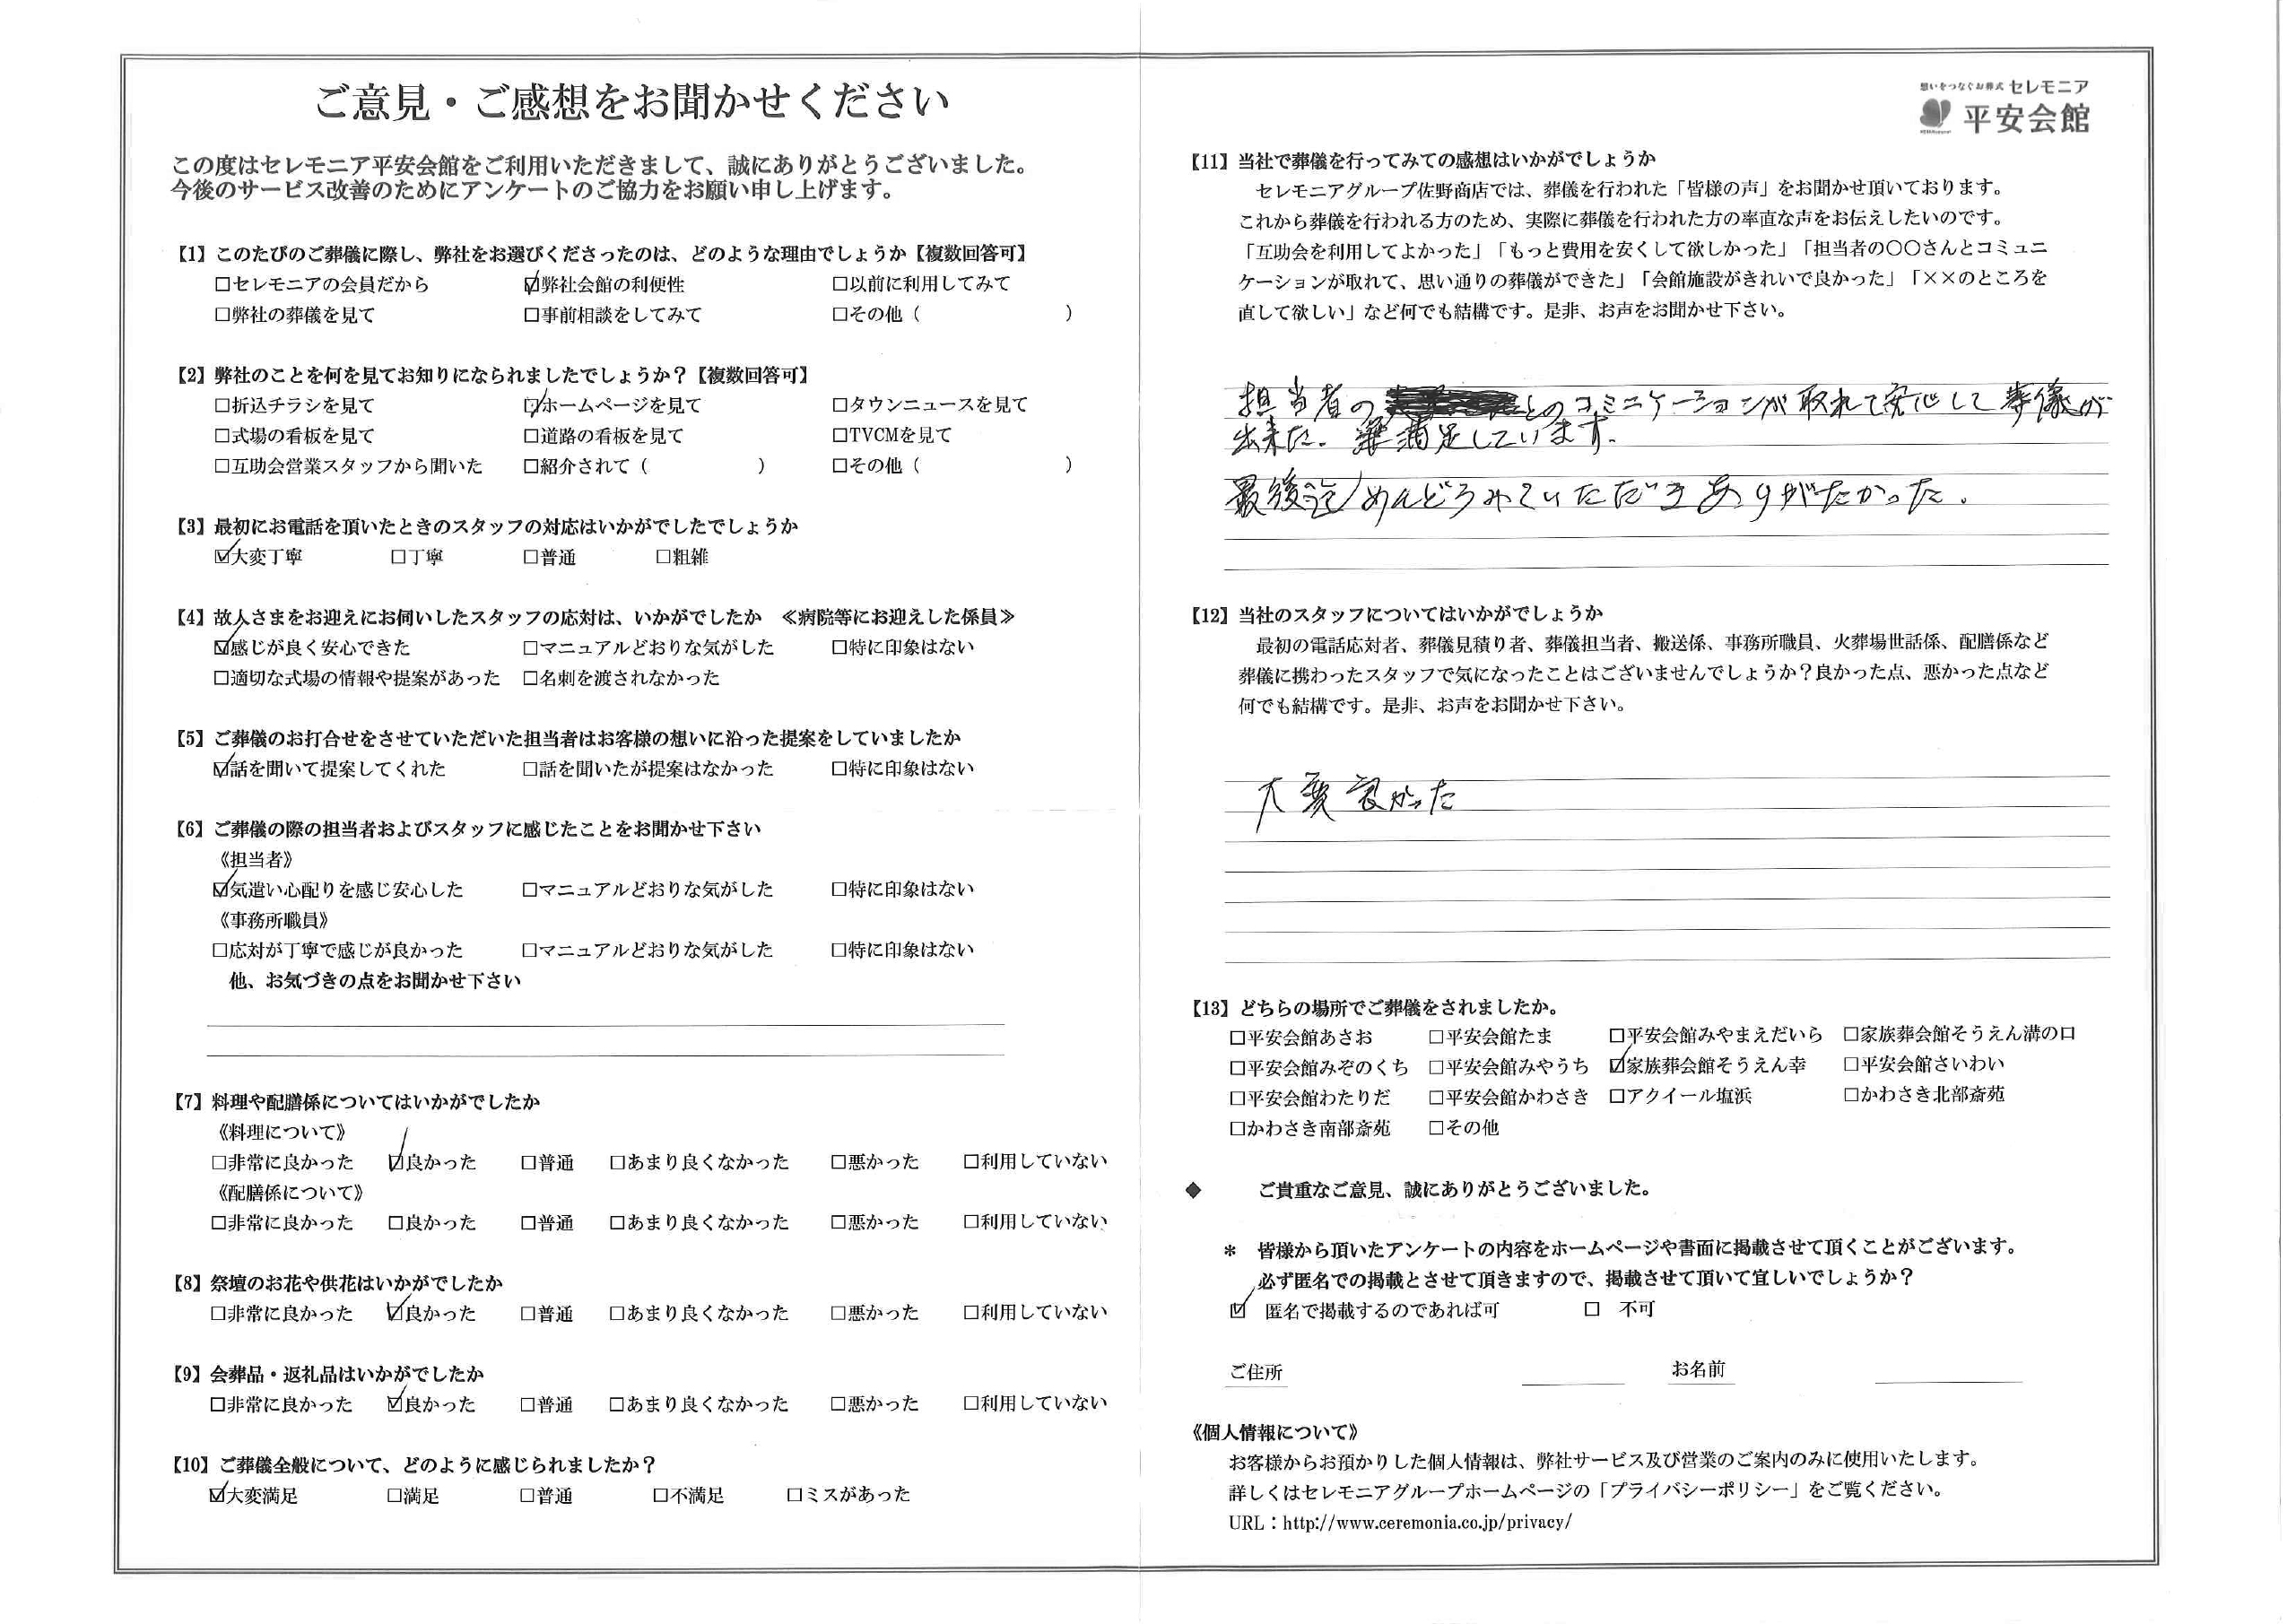 ご意見・ご感想をお聞かせください
この度はセレモニア平安会館をご利用いただきまして、誠にありがとうございました。
今後のサービス改善のためにアンケートのご協力をお願い申し上げます。
【1】このたびのご葬儀に際し、弊社をお選びくださったのは、どのような理由でしょうか【複数回答可】
□セレモニアの会員だから ☑弊社会館の利便性 □以前に利用してみて
□弊社の葬儀を見て □事前相談をしてみて □その他（ ）
【2】弊社のことを何を見てお知りになられましたでしょうか？【複数回答可】
□折込チラシを見て ☑ホームページを見て □タウンニュースを見て
□式場の看板を見て □道路の看板を見て □TVCMを見て
□互助会営業スタッフから聞いた □紹介されて（ ） □その他（ ）
【3】最初にお電話を頂いたときのスタッフの対応はいかがでしたでしょうか
☑大変丁寧 □丁寧 □普通 □粗雑
【4】故人さまをお迎えにお伺いしたスタッフの応対は、いかがでしたか ≪病院等にお迎えした係員≫
☑感じが良く安心できた □マニュアルどおりな気がした □特に印象はない
□適切な式場の情報や提案があった □名刺を渡されなかった
【5】ご葬儀のお打合せをさせていただいた担当者はお客様の想いに沿った提案をしていましたか
☑話を聞いて提案してくれた □話を聞いたが提案はなかった □特に印象はない
【6】ご葬儀の際の担当者およびスタッフに感じたことをお聞かせ下さい
《担当者》
☑気遣い心配りを感じ安心した □マニュアルどおりな気がした □特に印象はない
《事務所職員》
□応対が丁寧で感じが良かった □マニュアルどおりな気がした □特に印象はない
他、お気づきの点をお聞かせ下さい
【7】料理や配膳係についてはいかがでしたか
《料理について》
□非常に良かった ☑良かった □普通 □あまり良くなかった □悪かった □利用していない
《配膳係について》
□非常に良かった □良かった □普通 □あまり良くなかった □悪かった □利用していない
【8】祭壇のお花や供花はいかがでしたか
□非常に良かった ☑良かった □普通 □あまり良くなかった □悪かった □利用していない
【9】会葬品・返礼品はいかがでしたか
□非常に良かった ☑良かった □普通 □あまり良くなかった □悪かった □利用していない
【10】ご葬儀全般について、どのように感じられましたか？
☑大変満足 □満足 □普通 □不満足 □ミスがあった
想いをつなぐお葬式 セレモニア
平安会館
【11】当社で葬儀を行ってみての感想はいかがでしょうか
セレモニアグループ佐野商店では、葬儀を行われた「皆様の声」をお聞かせ頂いております。
これから葬儀を行われる方のため、実際に葬儀を行われた方の率直な声をお伝えしたいのです。
「互助会を利用してよかった」「もっと費用を安くして欲しかった」「担当者の〇〇さんとコミュニ
ケーションが取れて、思い通りの葬儀ができた」「会館施設がきれいで良かった」「××のところを
直して欲しい」など何でも結構です。是非、お声をお聞かせ下さい。
担当者の とのコミニケーションが取れて安心して葬儀が
出来た。満足しています。
最後迄めんどうみていただきありがたかった。
【12】当社のスタッフについてはいかがでしょうか
最初の電話応対者、葬儀見積り者、葬儀担当者、搬送係、事務所職員、火葬場世話係、配膳係など
葬儀に携わったスタッフで気になったことはございませんでしょうか？良かった点、悪かった点など
何でも結構です。是非、お声をお聞かせ下さい。
大変良かった
【13】どちらの場所でご葬儀をされましたか。
□平安会館あさお □平安会館たま □平安会館みやまえだいら □家族葬会館そうえん溝の口
□平安会館みぞのくち □平安会館みやうち ☑家族葬会館そうえん幸 □平安会館さいわい
□平安会館わたりだ □平安会館かわさき □アクイール塩浜 □かわさき北部斎苑
□かわさき南部斎苑 □その他
◆ ご貴重なご意見、誠にありがとうございました。
＊ 皆様から頂いたアンケートの内容をホームページや書面に掲載させて頂くことがございます。
必ず匿名での掲載とさせて頂きますので、掲載させて頂いて宜しいでしょうか？
☑ 匿名で掲載するのであれば可 □ 不可
ご住所 お名前
《個人情報について》
お客様からお預かりした個人情報は、弊社サービス及び営業のご案内のみに使用いたします。
詳しくはセレモニアグループホームページの「プライバシーポリシー」をご覧ください。
URL：http://www.ceremonia.co.jp/privacy/